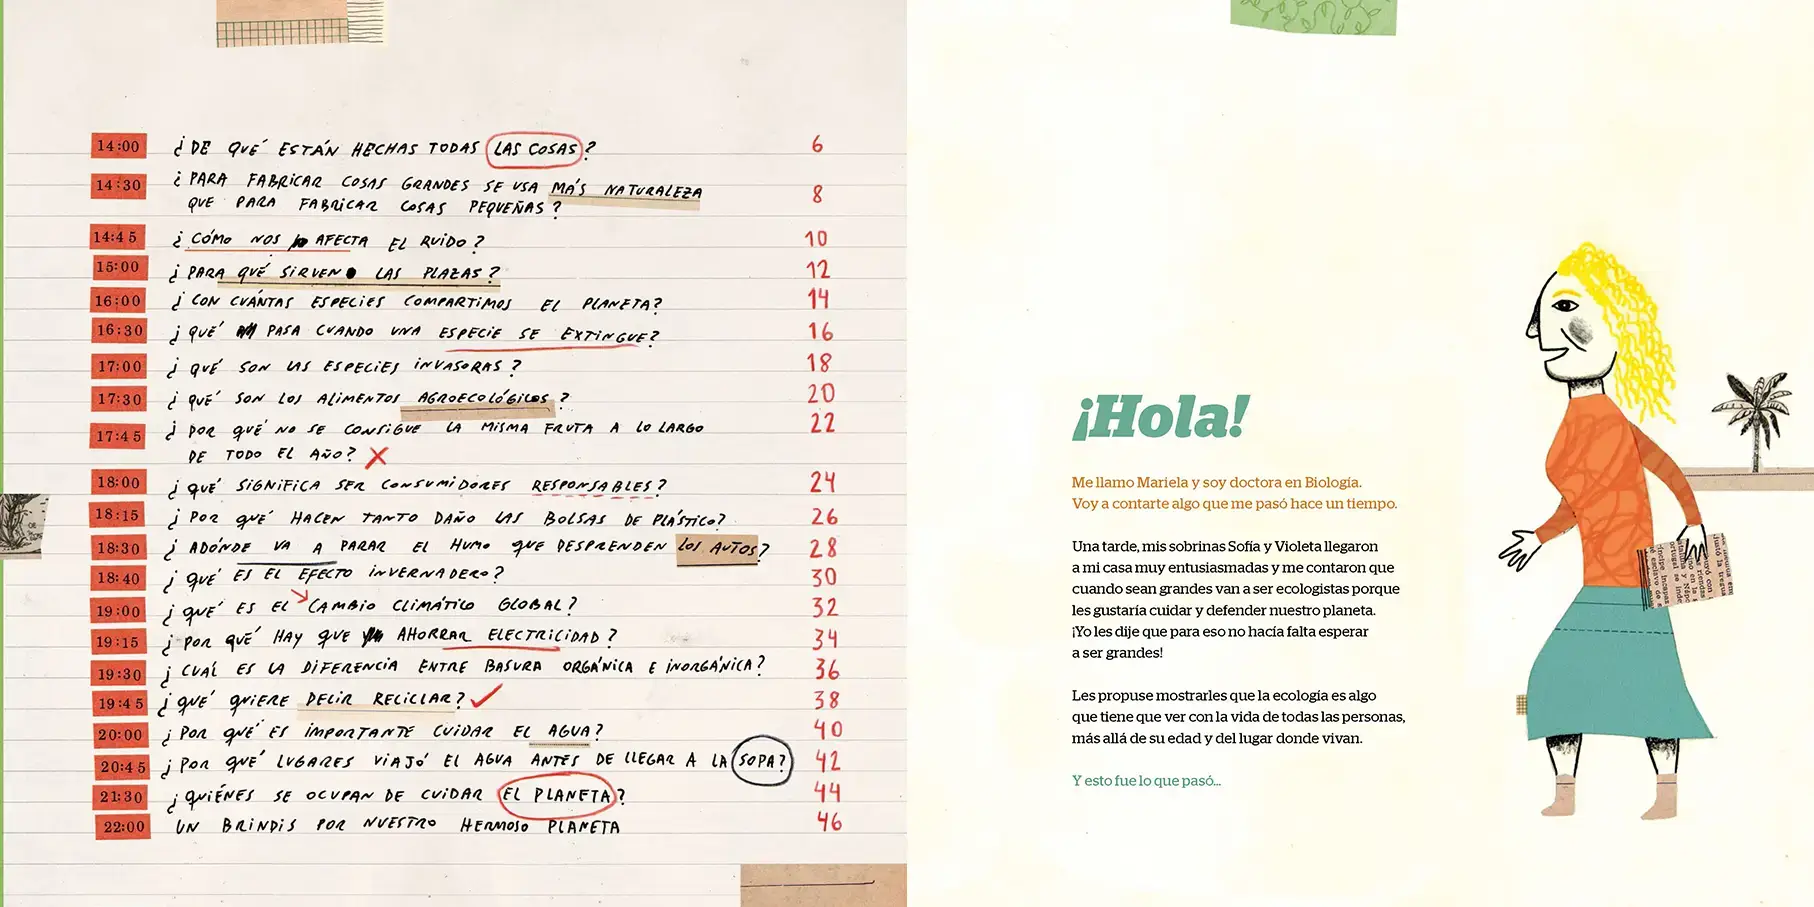 14:00 ¿DE QUÉ ESTÁN HECHAS TODAS LAS COSAS? 6
14:30 ¿PARA FABRICAR COSAS GRANDES SE USA MÁS NATURALEZA 8
QUE PARA FABRICAR COSAS PEQUEÑAS?
14:45 ¿CÓMO NOS AFECTA EL RUIDO? 10
15:00 ¿PARA QUÉ SIRVEN LAS PLAZAS? 12
16:00 ¿CON CUÁNTAS ESPECIES COMPARTIMOS EL PLANETA? 14
16:30 ¿QUÉ PASA CUANDO UNA ESPECIE SE EXTINGUE? 16
17:00 ¿QUÉ SON LAS ESPECIES INVASORAS? 18
17:30 ¿QUÉ SON LOS ALIMENTOS AGROECOLÓGICOS? 20
17:45 ¿POR QUÉ NO SE CONSIGUE LA MISMA FRUTA A LO LARGO 22
DE TODO EL AÑO?
18:00 ¿QUÉ SIGNIFICA SER CONSUMIDORES RESPONSABLES? 24
18:15 ¿POR QUÉ HACEN TANTO DAÑO LAS BOLSAS DE PLÁSTICO? 26
18:30 ¿ADÓNDE VA A PARAR EL HUMO QUE DESPRENDEN LOS AUTOS? 28
18:40 ¿QUÉ ES EL EFECTO INVERNADERO? 30
19:00 ¿QUÉ ES EL CAMBIO CLIMÁTICO GLOBAL? 32
19:15 ¿POR QUÉ HAY QUE AHORRAR ELECTRICIDAD? 34
19:30 ¿CUÁL ES LA DIFERENCIA ENTRE BASURA ORGÁNICA E INORGÁNICA? 36
19:45 ¿QUÉ QUIERE DECIR RECICLAR? 38
20:00 ¿POR QUÉ ES IMPORTANTE CUIDAR EL AGUA? 40
20:45 ¿POR QUÉ LUGARES VIAJÓ EL AGUA ANTES DE LLEGAR A LA SOPA? 42
21:30 ¿QUIÉNES SE OCUPAN DE CUIDAR EL PLANETA? 44
22:00 UN BRINDIS POR NUESTRO HERMOSO PLANETA 46
¡Hola!
Me llamo Mariela y soy doctora en Biología.
Voy a contarte algo que me pasó hace un tiempo.
Una tarde, mis sobrinas Sofía y Violeta llegaron
a mi casa muy entusiasmadas y me contaron que
cuando sean grandes van a ser ecologistas porque
les gustaría cuidar y defender nuestro planeta.
¡Yo les dije que para eso no hacía falta esperar
a ser grandes!
Les propuse mostrarles que la ecología es algo
que tiene que ver con la vida de todas las personas,
más allá de su edad y del lugar donde vivan.
Y esto fue lo que pasó...